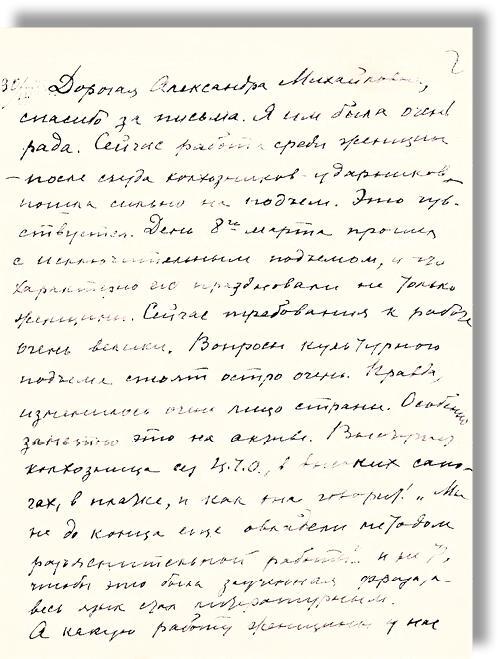 2
30/III Дорогая Александра Михайловна,
спасибо за письма. Я им была очень
рада. Сейчас работа среди женщин
– после съезда колхозников-ударников
пошла сильно на подъем. Это чув-
ствуется. День 8го марта прошел
с исключительным подъемом, и что
характерно его праздновали не только
женщины. Сейчас требования к работе
очень велики. Вопросы культурного
подъема стоят остро очень. Правда,
изменилось очень лицо страны. Особенно
заметно это на активе. Выступает
колхозница из Ц.Ч.О., в высоких сапо-
гах, в платке, и как она говорит! „Мы
не до конца еще овладели методом
разъяснительной работы" и не то,
чтобы это была заученная фраза, а
весь язык стал литературным.
А какую работу женщины у нас